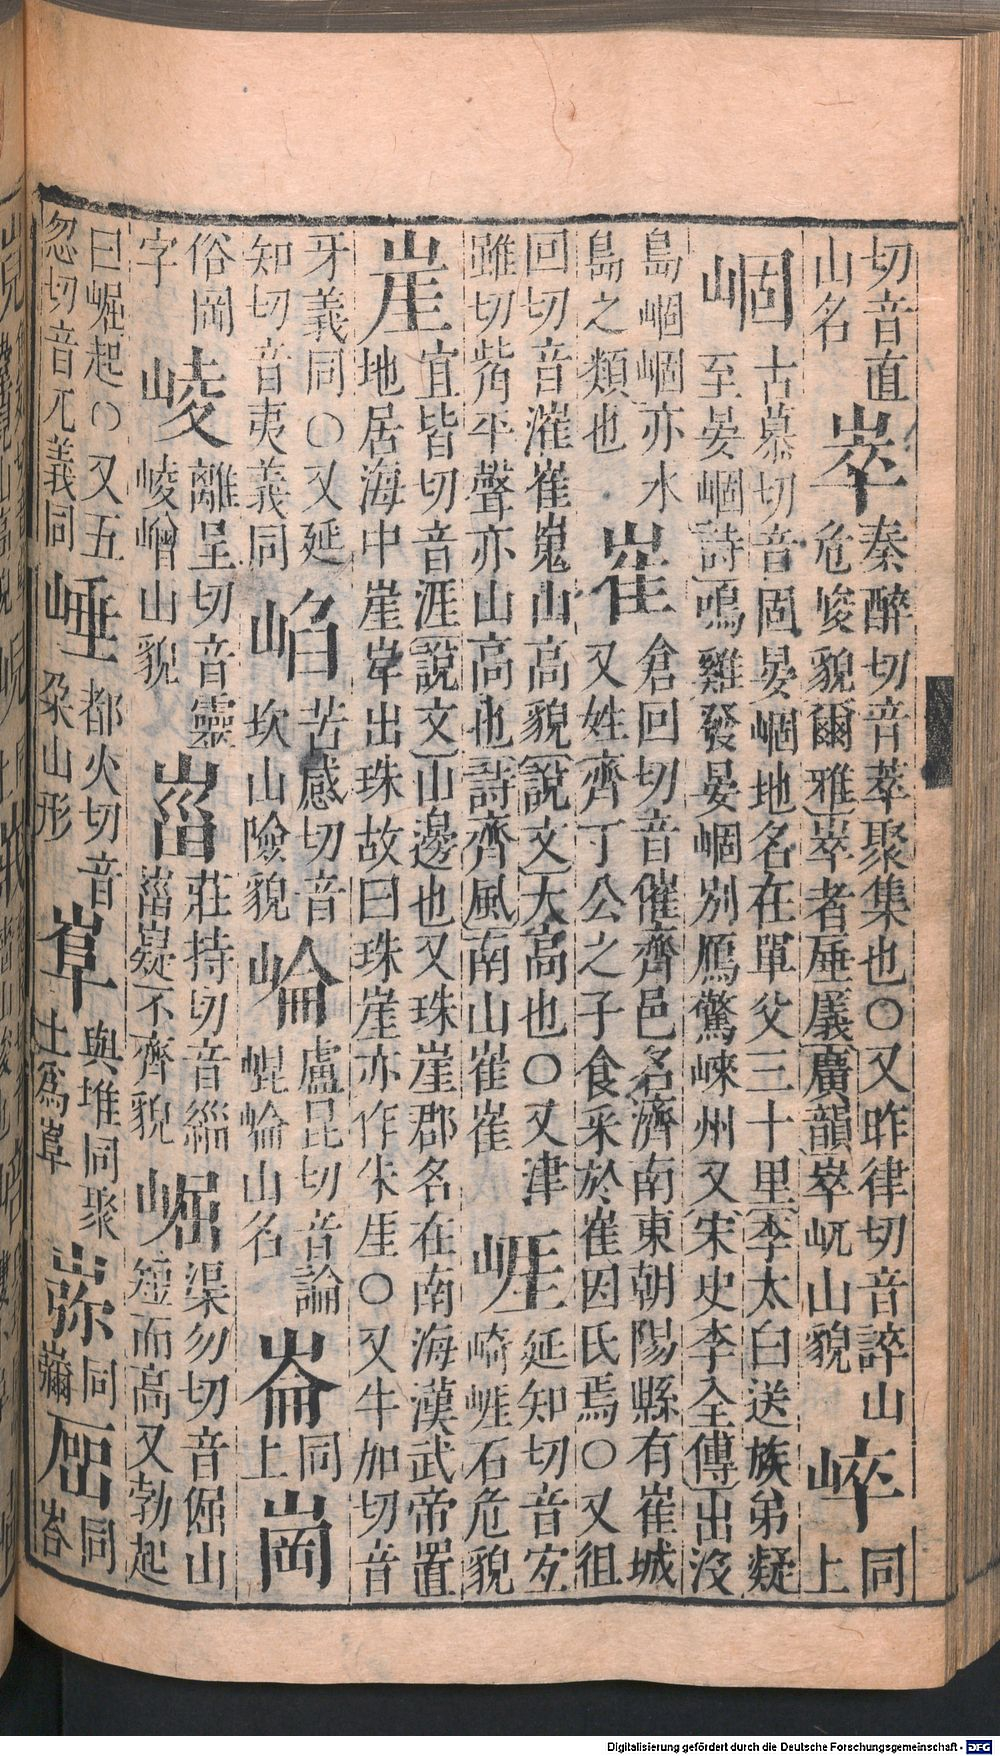 切音直山名崒秦醉切音萃聚集也○又昨律切音誶山危峻貌爾雅崒者厜㕒廣韻崒屼山貌崪同上
崓古慕切音固晏崓地名在單父三十里李太白送族弟疑至晏崓詩鳴雞發晏崓別鴈驚崍州又宋史李全傳出沒
島崓崓亦水島之類也崔倉回切音催齊邑名濟南東朝陽縣有崔城又姓齊丁公之子食采於崔因氏焉○又徂
回切音漼崔嵬山高貌說文大高也○又津雖切觜平聲亦山高也詩齊風南山崔崔崕延知切音㝐崎崕石危貌
崖宜皆切音涯說文山邊也又珠崖郡名在南海漢武帝置地居海中崖岸出珠故曰珠崖亦作朱厓○又牛加切音
牙義同○又延知切音夷義同苦感切音坎山險貌崘盧昆切音論崐崘山名崙同上崗
俗岡字崚離呈切音靈崚嶒山貌崰莊持切音緇崰嶷不齊貌崛渠勿切音倔山短而高又勃起
曰崛起○又五忽切音兀義同崜都火切音朵山形與堆同聚土為同同峇